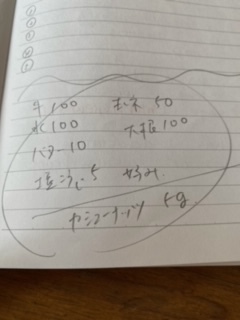 ①
②
③
④
⑤
牛100 玉ネ50
水100 大根100
バター10
塩ふし5 好み
カシューナッツ 5g